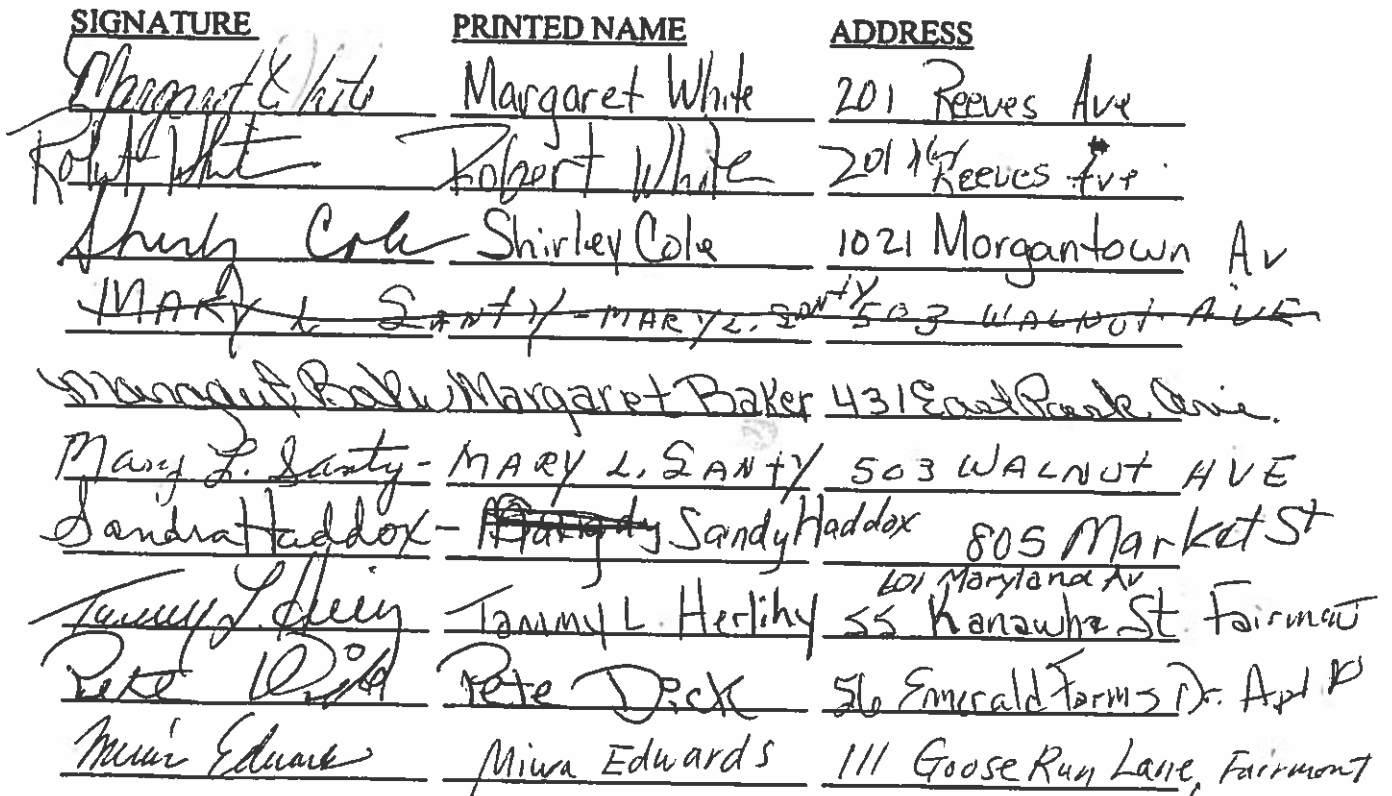 SIGNATURE PRINTED NAME ADDRESS
Margaret White Margaret White 201 Reeves Ave
Robert White Robert White 201 Reeves Ave
Shirley Cole Shirley Cole 1021 Morgantown Av
MARY L SANTY - MARY L. SANTY 503 WALNUT AVE
Margaret Baker Margaret Baker 431 East Park Ave.
Mary L. Santy - MARY L. SANTY 503 WALNUT AVE
Sandra Haddox - Sandy Haddox 805 Market St
601 Maryland Av
Tammy L. Tammy L. Herlihy 55 Kanawha St. Fairmont
Pete Dick Pete Dick 56 Emerald Farms Dr. Apt
Edwards Miwa Edwards 111 Goose Run Lane, Fairmont